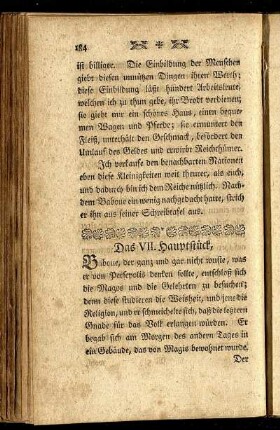 184
ist billiger. Die Einbildung der Menschen
giebt diesen unnützen Dingen ihren Werth;
diese Einbildung läßt hundert Arbeitsleute,
welchen ich zu thun gebe, ihr Brodt verdienen;
sie giebt mir ein schönes Haus, einen beque-
men Wagen und Pferde; sie ermuntert den
Fleiß, unterhält den Geschmack, befördert den
Umlauf des Geldes und erwirbt Reichthümer.
Ich verkaufe den benachbarten Nationen
eben diese Kleinigkeiten weit theurer, als euch,
und dadurch bin ich dem Reiche nützlich. Nach-
dem Babouc ein wenig nachgedacht hatte, strich
er ihn aus seiner Schreibtafel aus.
Das VII. Hauptstück,
Babouc, der ganz und gar nicht wuste, was
er von Persepolis denken sollte, entschloß sich
die Magos und die Gelehrten zu besuchen;
denn diese studieren die Weisheit, und jene die
Religion, und er schmeichelte sich, daß die letztern
Gnade für das Volk erlangen würden. Er
begab sich am Morgen des andern Tages in
ein Gebäude, das von Magis bewohnet wurde.
Der